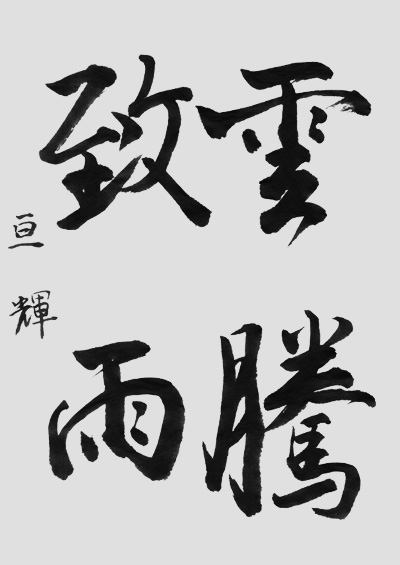 雲騰
致雨
亘輝